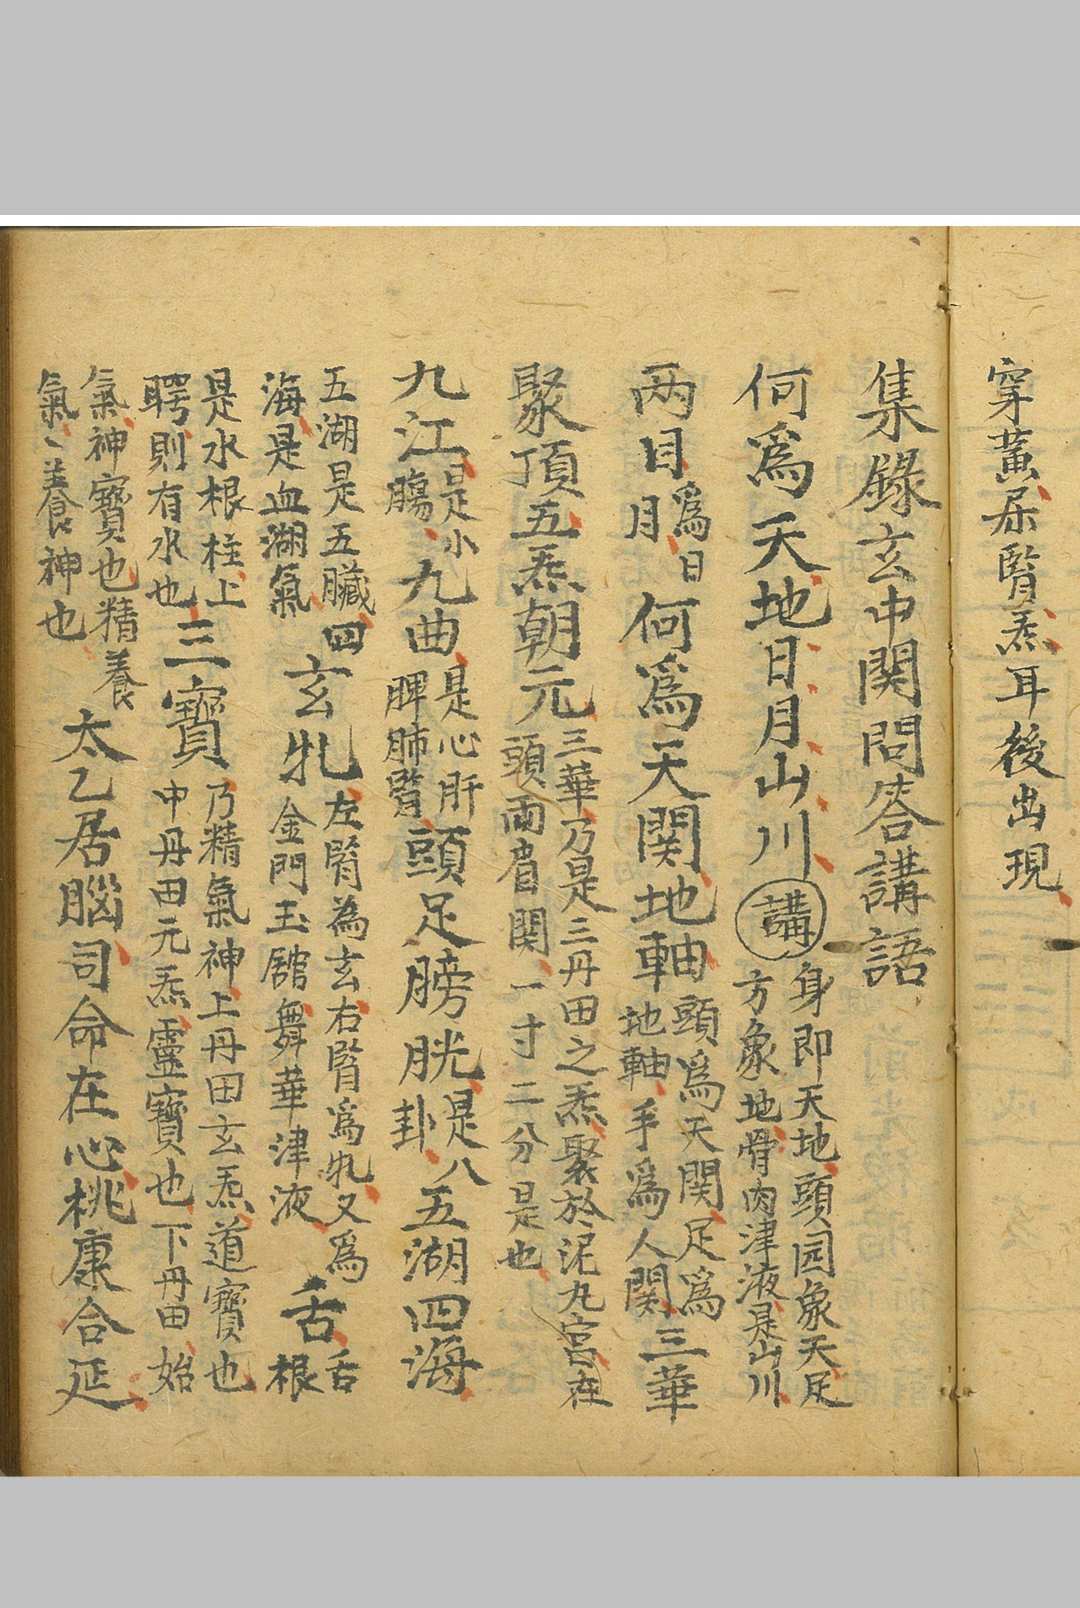 穿黄
腎炁耳後出現
集錄玄中関問答講語
何爲天地日月山川講身即天地頭园象天足
方象地骨肉津液是山川
两目爲日
月何爲天関地軸頭爲天関足爲
地軸手爲人関三華
聚頂五炁朝元三華乃是三丹田之炁聚於泥丸宮在
頭両眉関一寸二分是也
九江是小
腸九曲是心肝
脾肺腎頭足膀胱是八
卦五湖四海
五湖是五臟四
海是血湖氣玄牝左腎為玄右腎爲牝又爲
金門玉舘舞華津液舌舌
根
是水根柱上
腭則有水也三寶乃精氣神上丹田玄炁道寶也
中丹田元炁靈寶也下丹田始
氣神寶也精養
氣〻養神也太乙居腦司命在心桃康合延